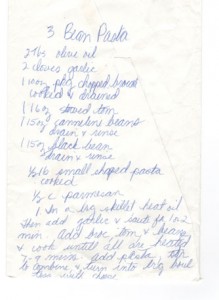 3 Bean Pasta
2 Tbs olive oil
2 cloves garlic
1 10oz pkg chopped broc
cooked & drained
1 16oz stewed tom
1 15oz cannelini beans
drain & rinse
1 15oz black bean
drain & rinse
1/2 lb small shaped pasta
cooked
1/2 c parmesan
1 In a big skillet heat oil
then add garlic & saute for 1 or 2
min add broc, tom, & beans
& cook untill all are heated
mins add pasta, stir
to combine, & turn into big bowl